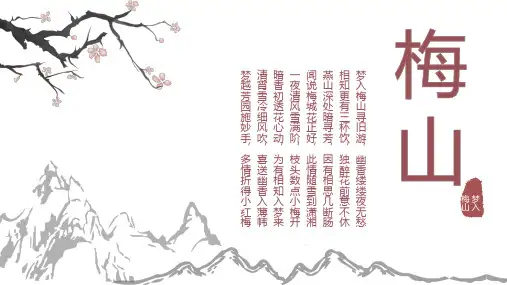 梅山
梦入
梅山
梦入梅山寻旧游, 幽香缕缕夜无愁
相知更有三杯饮, 独醉花前意不休
燕山深处暗寻芳, 因有相思几断肠
闻说梅城花正好, 此情随雪到潇湘
一夜清风雪满阶, 枝头数点小梅开
暗香初透花心动, 为有相知入梦来
清宵雪冷细风吹, 喜送幽香入薄帏
梦越芳园施妙手, 多情折得小红梅